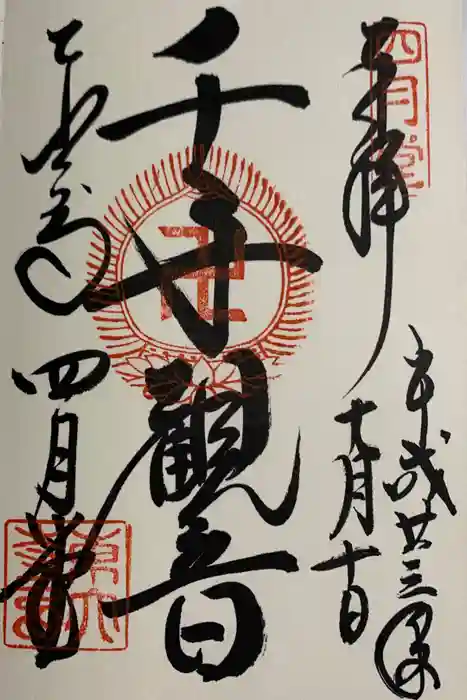 四月堂
奉拝
平成廿三年
十月十日
千手觀音
卍
東大寺
四月堂